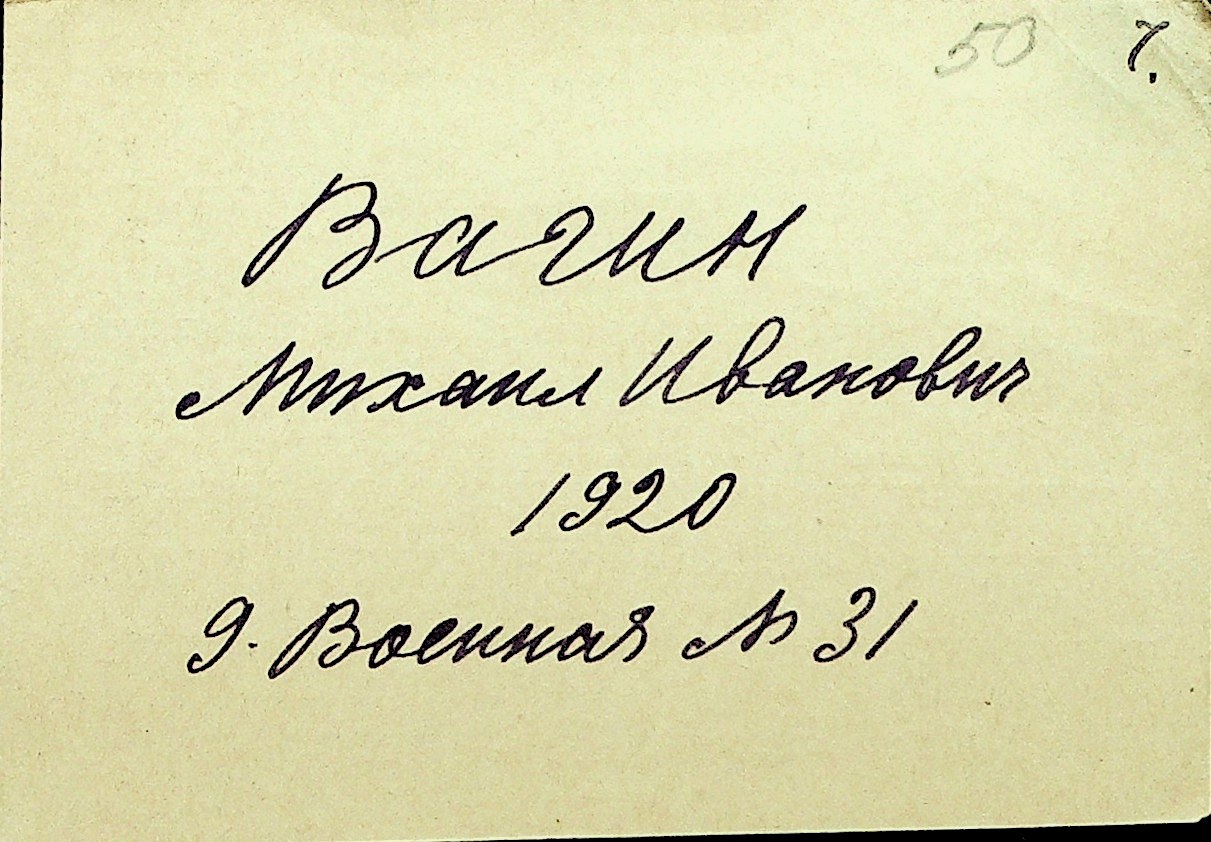 50 7.
Вагин
Михаил Иванович
1920
д. Военная № 31